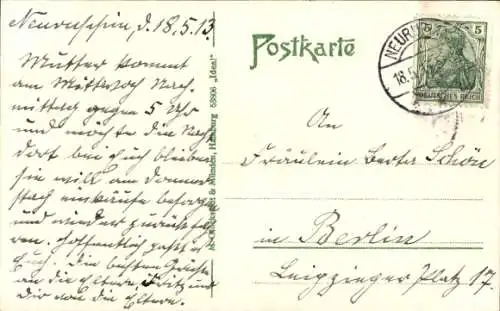 Neuruppin, d. 18.5.13.
Mutter kommt
am Mittwoch Nach
mittag gegen 5 Uhr
und möchte die Nacht
dort bei Euch bleiben
sie will am Donner
stag einkäufe besorgen
und wieder zurückfah
ren. Hoffentlich paßt es
Euch. Die besten Grüße
an die Eltern, Fritz und
Dir von die Eltern.
& Münster, Hamburg 63806 „Ideal"
Postkarte
NEURU
18.5
5 5
DEUTSCHES REICH
An
Fräulein Berta Schön
in Berlin
Leipziger Platz 17.